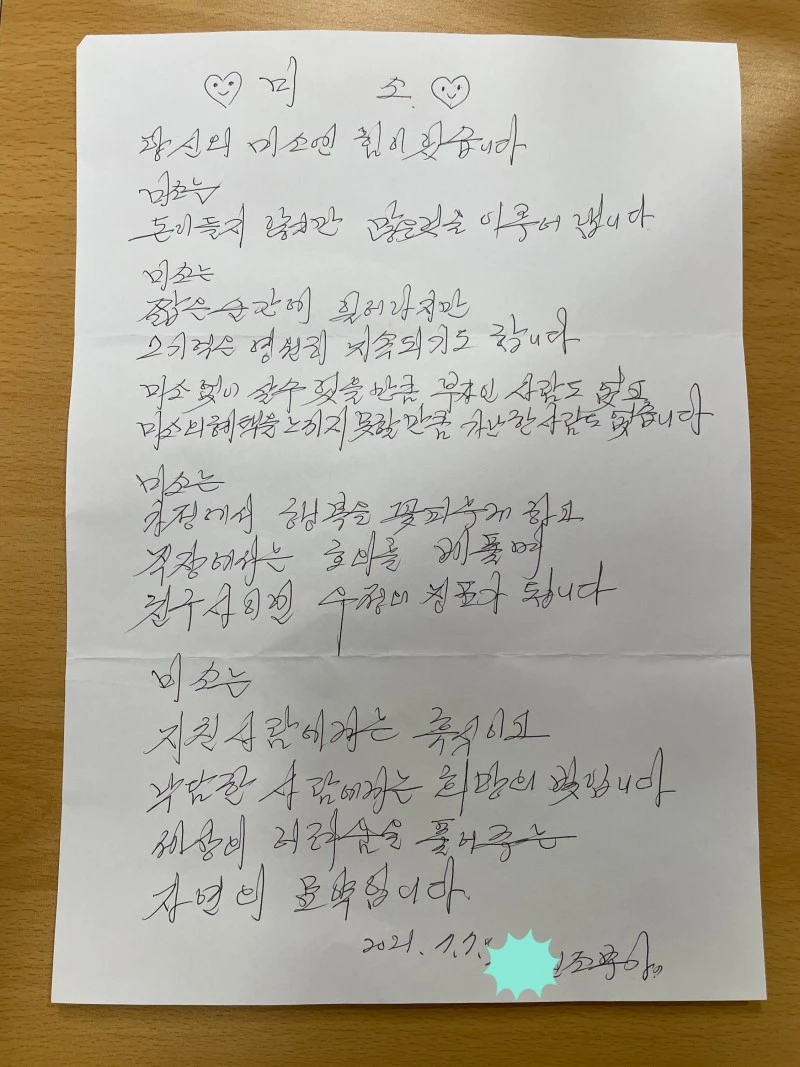 미 소
당신의 미소엔 힘이 있습니다
미소는
돈이들지 않지만 많은것을 이루어 냅니다
미소는
짧은순간에 흘러가지만
그기억은 영원히 지속되기도 합니다
미소 없이 살수 있을 만큼 부자인 사람도 없고
미소의혜택을 느끼지 못할 만큼 가난한 사람도 없습니다
미소는
가정에서 행복을 꽃피우게 하고
직장에서는 호의를 베풀며
친구사이엔 우정의 징표가 됩니다
미소는
지친사람에게는 휴식이고
낙담한 사람에게는 희망의 빛입니다
세상의 어려움을 풀어주는
자연의 묘약입니다.
2021. 7.7.